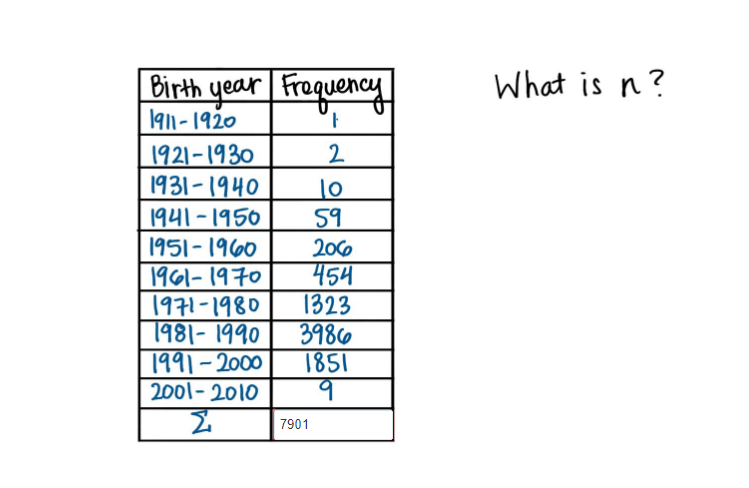 What is n?
Birth year Frequency
1911-1920 1
1921-1930 2
1931-1940 10
1941-1950 59
1951-1960 206
1961-1970 454
1971-1980 1323
1981-1990 3986
1991-2000 1851
2001-2010 9
Σ 7901